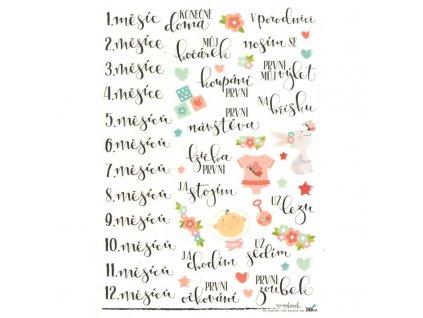 1. měsíc
2. měsíce
3. měsíce
4. měsíce
5. měsíců
6. měsíců
7. měsíců
8. měsíců
9. měsíců
10. měsíců
11. měsíců
12. měsíců
KONEČNĚ
doma
V porodnici
MŮJ
kočárek
nosím SE
koupání
PRVNÍ
PRVNÍ
MŮJ výlet
PRVNÍ
návštěva
NA
bříšku
lžička
PRVNÍ
JÁ
stojím
UŽ
lezu
JÁ
chodím
UŽ
sedím
PRVNÍ
očkování
PRVNÍ
zoubek